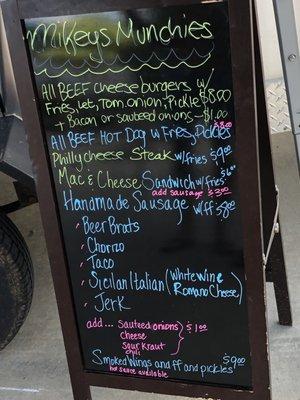 Mikeys Munchies
All BEEF cheeseburgers w/
Fries, let, Tom, onion, Pickle $8.00
+ Bacon or sauteed onions - $1.00
All BEEF HOT DOG w/ Fries, Pickles $8.00
Philly cheese Steak w/fries $9.00
Mac & Cheese Sandwich w/fries $6.00
add sausage $3.00
Handmade Sausage w/ff $8.00
Beer Brats
Chorzo
Taco
Sicilan Italian (White Wine
Romano Cheese)
Jerk
add... Sauteed onions
Cheese $1.00
Sour Kraut
chili
Smoked Wings and ff and pickles $9.00
hot sauce available